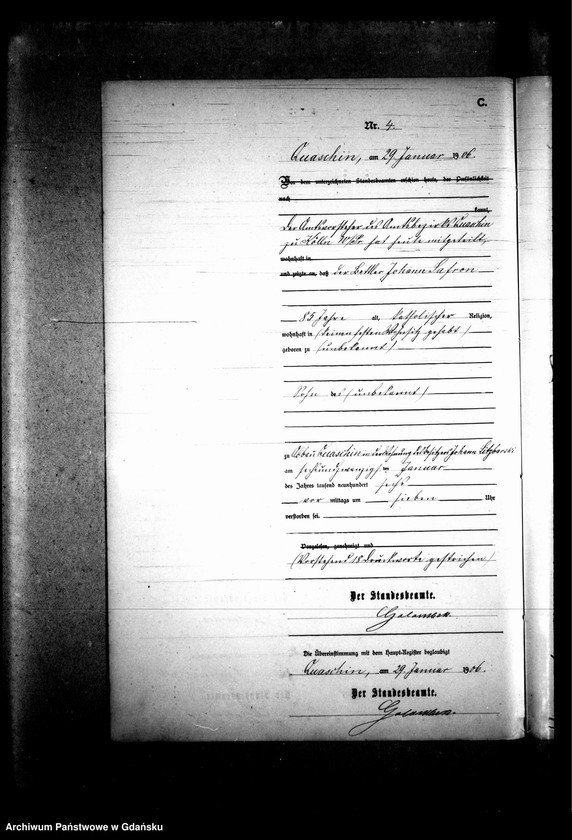 C.
Nr. 4.
Quaschin, am 29 Januar 1906.
Vor dem unterzeichneten Standesbeamten erschien heute, der Persönlichkeit
nach
kannt,
Der Amtsvorsteher des Amtsbezirks Quaschin
zu Kölln W/Pr hat heute mitgeteilt,
wohnhaft in
und zeigte an, daß der Bettler Johann Safron
85 Jahre alt, katholischer Religion,
wohnhaft in (keinen festen Wohnsitz gehabt)
geboren zu (unbekannt)
Sohn des (unbekannt)
zu Quaschin in der Wohnung des Besitzers Johann
am sechsundzwanzig ten Januar
des Jahres tausend neunhundert sechs
vor mittags um sieben Uhr
verstorben sei.
Vorgelesen, genehmigt und
(Vorstehend 18 Druckworte gestrichen)
Der Standesbeamte.
Golombek
Die Übereinstimmung mit dem Haupt-Register beglaubigt
Quaschin, am 29 Januar 1906.
Der Standesbeamte.
Golombek.
Archiwum Państwowe w Gdańsku